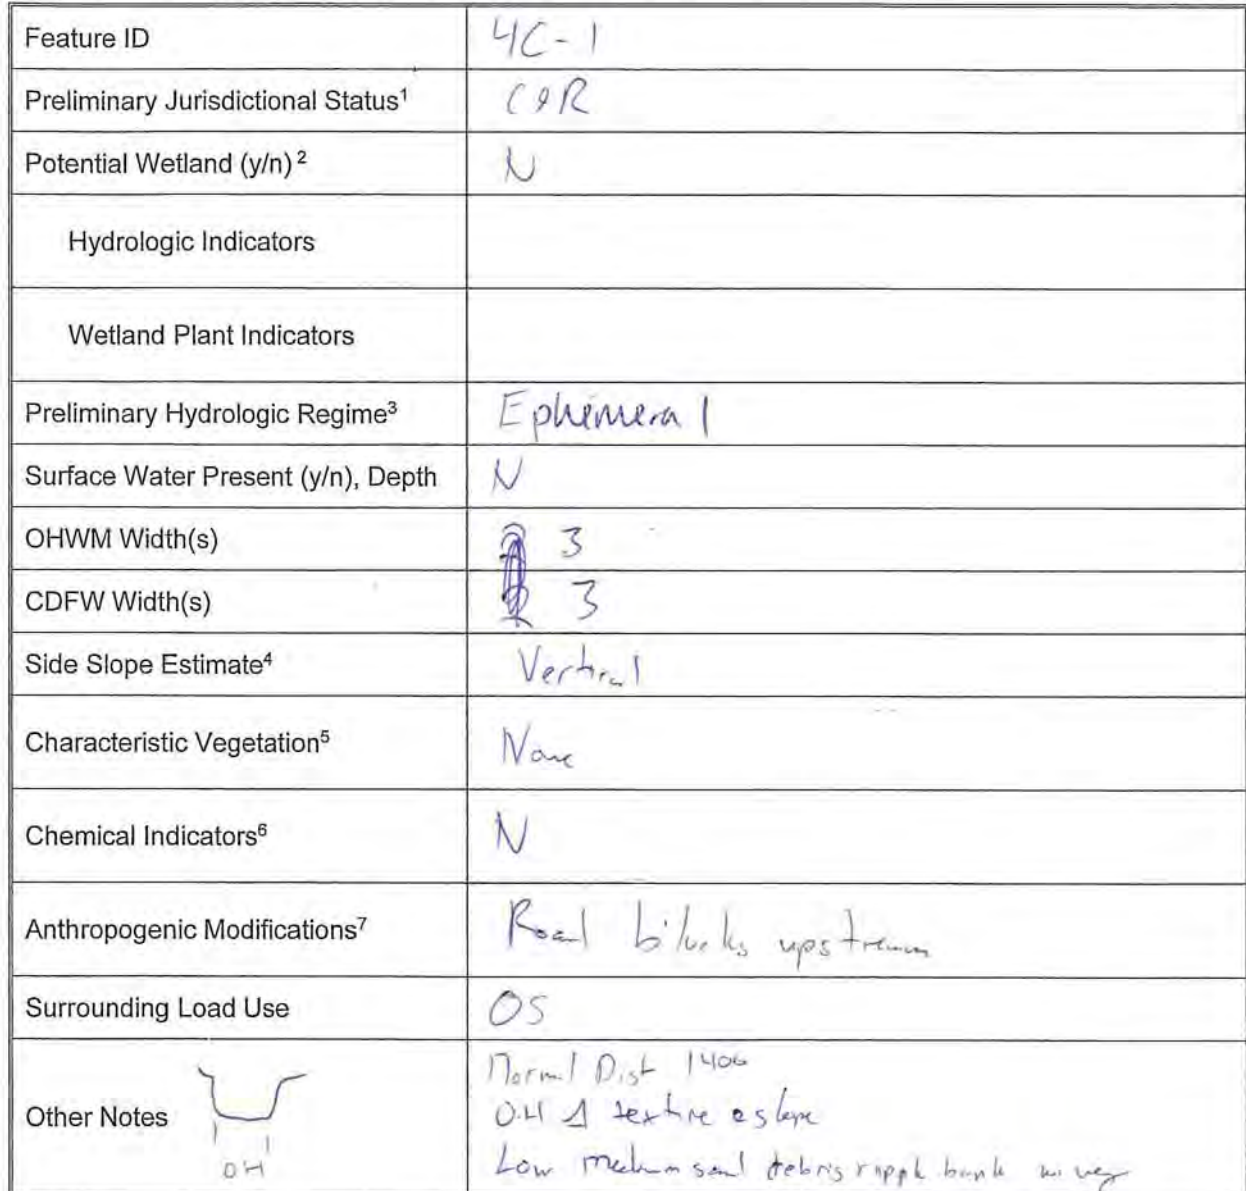 Feature ID 4C-1
Preliminary Jurisdictional Status¹
Potential Wetland (y/n) ² N
Hydrologic Indicators
Wetland Plant Indicators
Preliminary Hydrologic Regime³ Ephemeral
Surface Water Present (y/n), Depth N
OHWM Width(s) 3
CDFW Width(s) 3
Side Slope Estimate⁴ Vertical
Characteristic Vegetation⁵ None
Chemical Indicators⁶ N
Anthropogenic Modifications⁷ Road blocks upstream
Surrounding Load Use OS
Normal Dist
Other Notes OH Δ texture slope
OH Low medium sand debris ripple bank no veg